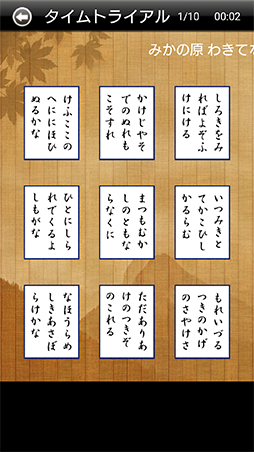 タイムトライアル 1/10 00:02
みかの原 わきてな
しろきをみ
ればよぞふ
けにける
かけじやそ
でのぬれも
こそすれ
けふここの
へににほひ
ぬるかな
いつみきと
てかこひし
かるらむ
まつもむか
しのともな
らなくに
ひとにしら
れでくるよ
しもがな
もれいづる
つきのかげ
のさやけさ
ただありあ
けのつきぞ
のこれる
なほうらめ
しきあさぼ
らけかな